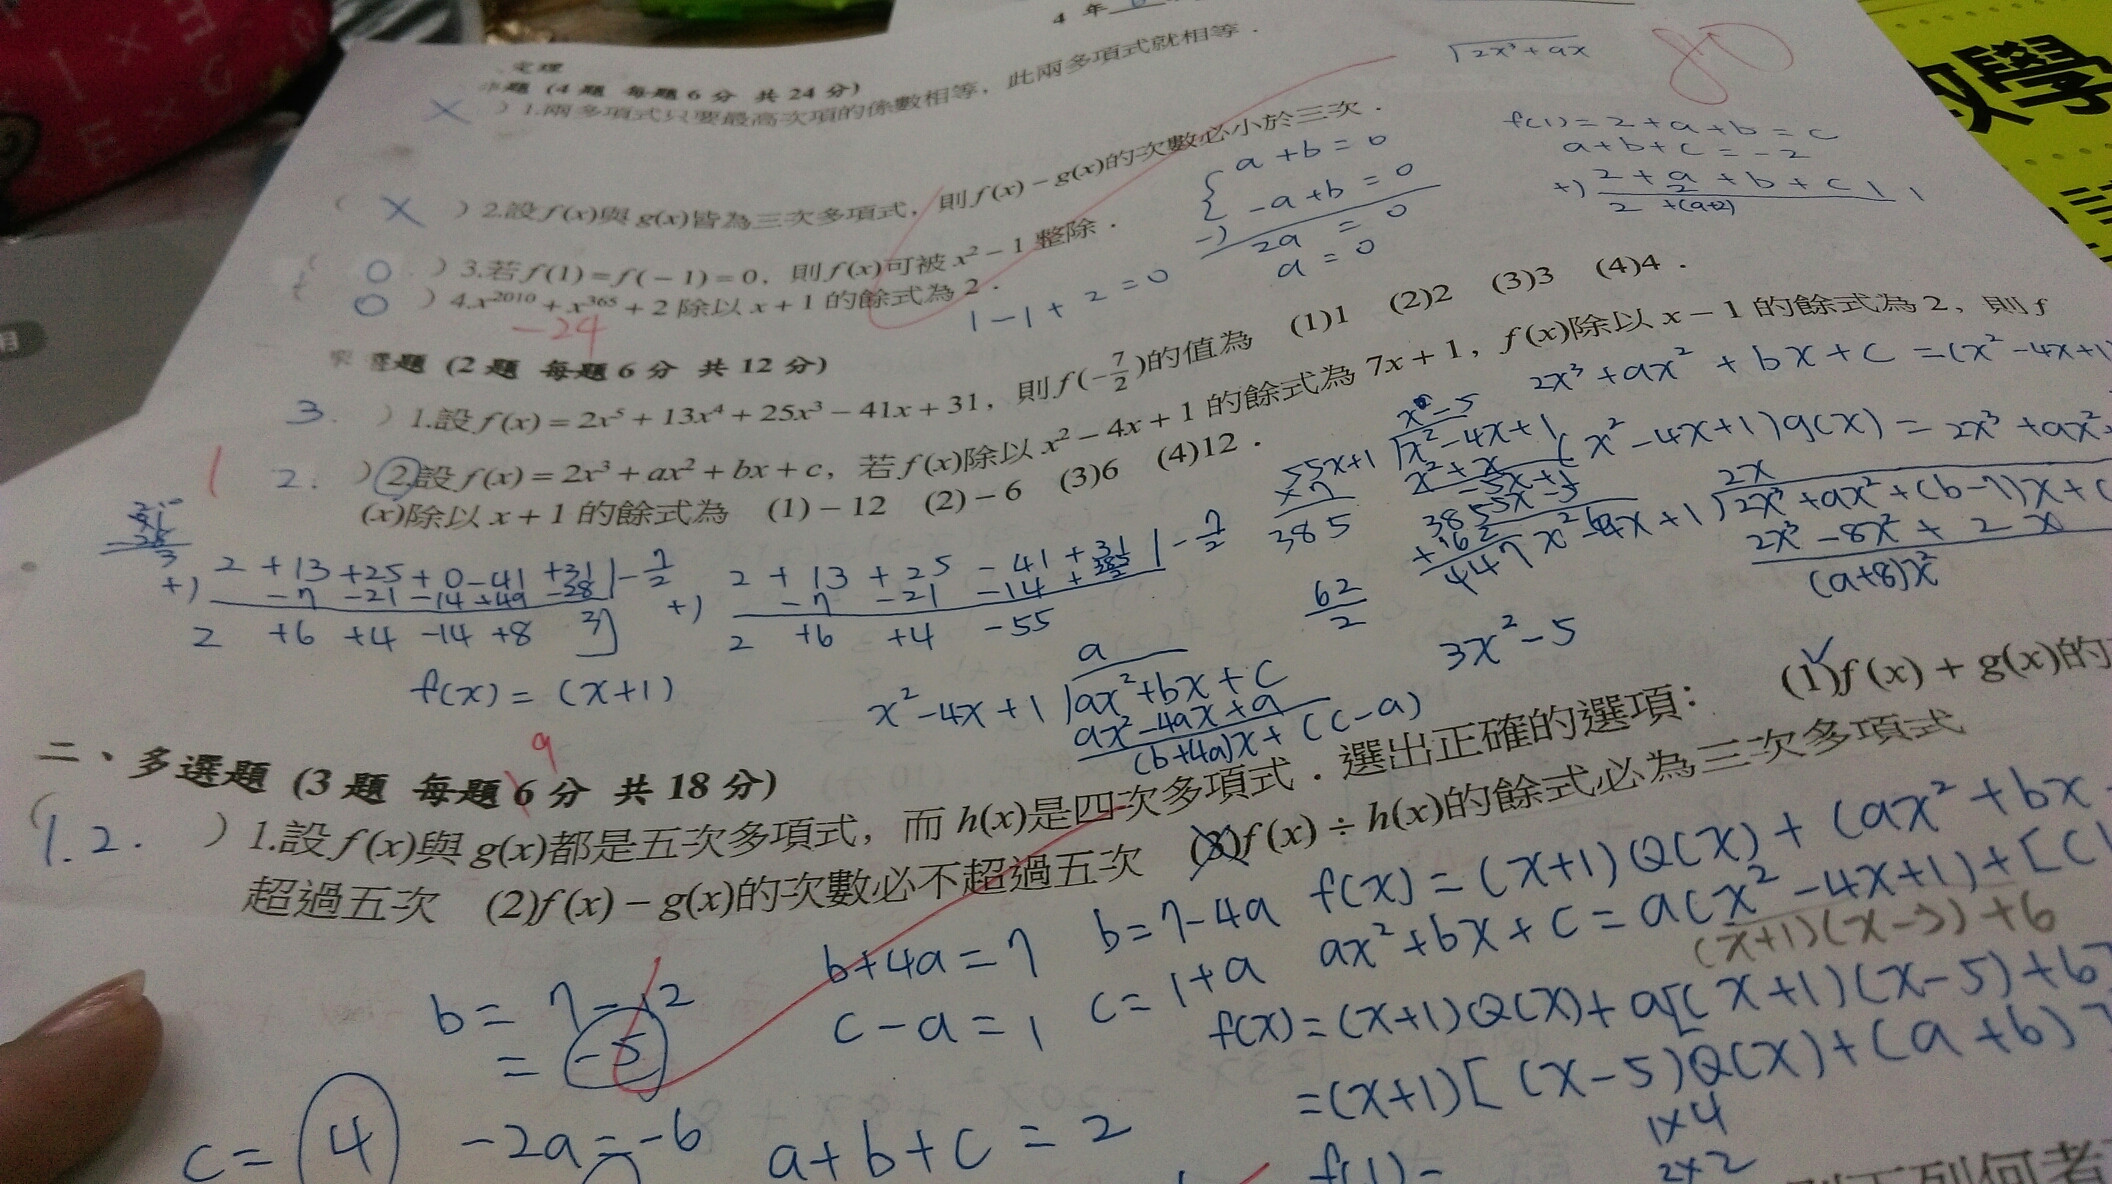 4 年
定理
題 (4 題 每題 6 分 共 24 分)
× ) 1.兩多項式只要最高次項的係數相等，此兩多項式就相等．
( × ) 2.設 f(x)與 g(x)皆為三次多項式，則 f(x)－g(x)的次數必小於三次．
( 0 ) 3.若 f(1)=f(－1)=0，則 f(x)可被 x²－1 整除．
0 ) 4.x²⁰¹⁰+x³⁶⁵+2 除以 x+1 的餘式為 2．
-24
√2x³+ax
80
f(1)=2+a+b=c
a+b+c=-2
+) 2+a+b+c | 1
2 +(a+2)
a+b=0
-a+b=0
-) 2a = 0
a = 0
1-1+2=0
題 (2 題 每題 6 分 共 12 分)
3. ) 1.設 f(x)=2x⁵+13x⁴+25x³－41x+31，則 f(－7/2)的值為 (1)1 (2)2 (3)3 (4)4．
1
2. ) 2.設 f(x)=2x³+ax²+bx+c，若 f(x)除以 x²－4x+1 的餘式為 7x+1，f(x)除以 x－1 的餘式為 2，則 f
(x)除以 x+1 的餘式為 (1)－12 (2)－6 (3)6 (4)12．
2x³+ax²+bx+c=(x²-4x+1)
(x²-4x+1)q(x)=2x³+ax²
x+1 √x²-4x+1
x²+x
-5x+1
-5x-5
55
×7
385
447
62/2
2x
x²-4x+1 √2x³+ax²+(b-7)x+
2x³-8x²+2x
(a+8)x²
2+13+25+0-41+31 | -7/2
+) -7 -21 -14 +49 -28
2 +6 +4 -14 +8 3
2+13+25-41+31 | -7/2
+) -7 -21 -14
2 +6 +4 -55
f(x)=(x+1)
a
x²-4x+1 √ax²+bx+c
ax²-4ax+a
(b+4a)x+(c-a)
3x²-5
9
二、多選題 (3 題 每題 6 分 共 18 分)
(1.2. ) 1.設 f(x)與 g(x)都是五次多項式，而 h(x)是四次多項式．選出正確的選項： (1)f(x)+g(x)的
超過五次 (2)f(x)－g(x)的次數必不超過五次 (3)f(x)÷h(x)的餘式必為三次多項式
b=7-12
=-5
b+4a=7
c-a=1
b=7-4a
c=1+a
f(x)=(x+1)Q(x)+(ax²+bx
ax²+bx+c=a(x²-4x+1)+[
(x+1)(x-5)+6
f(x)=(x+1)Q(x)+a[(x+1)(x-5)+6]
=(x+1)[(x-5)Q(x)+(a+b)
c=4
-2a=-6
a+b+c=2
f(1)=
1×4
2×2
下列何者